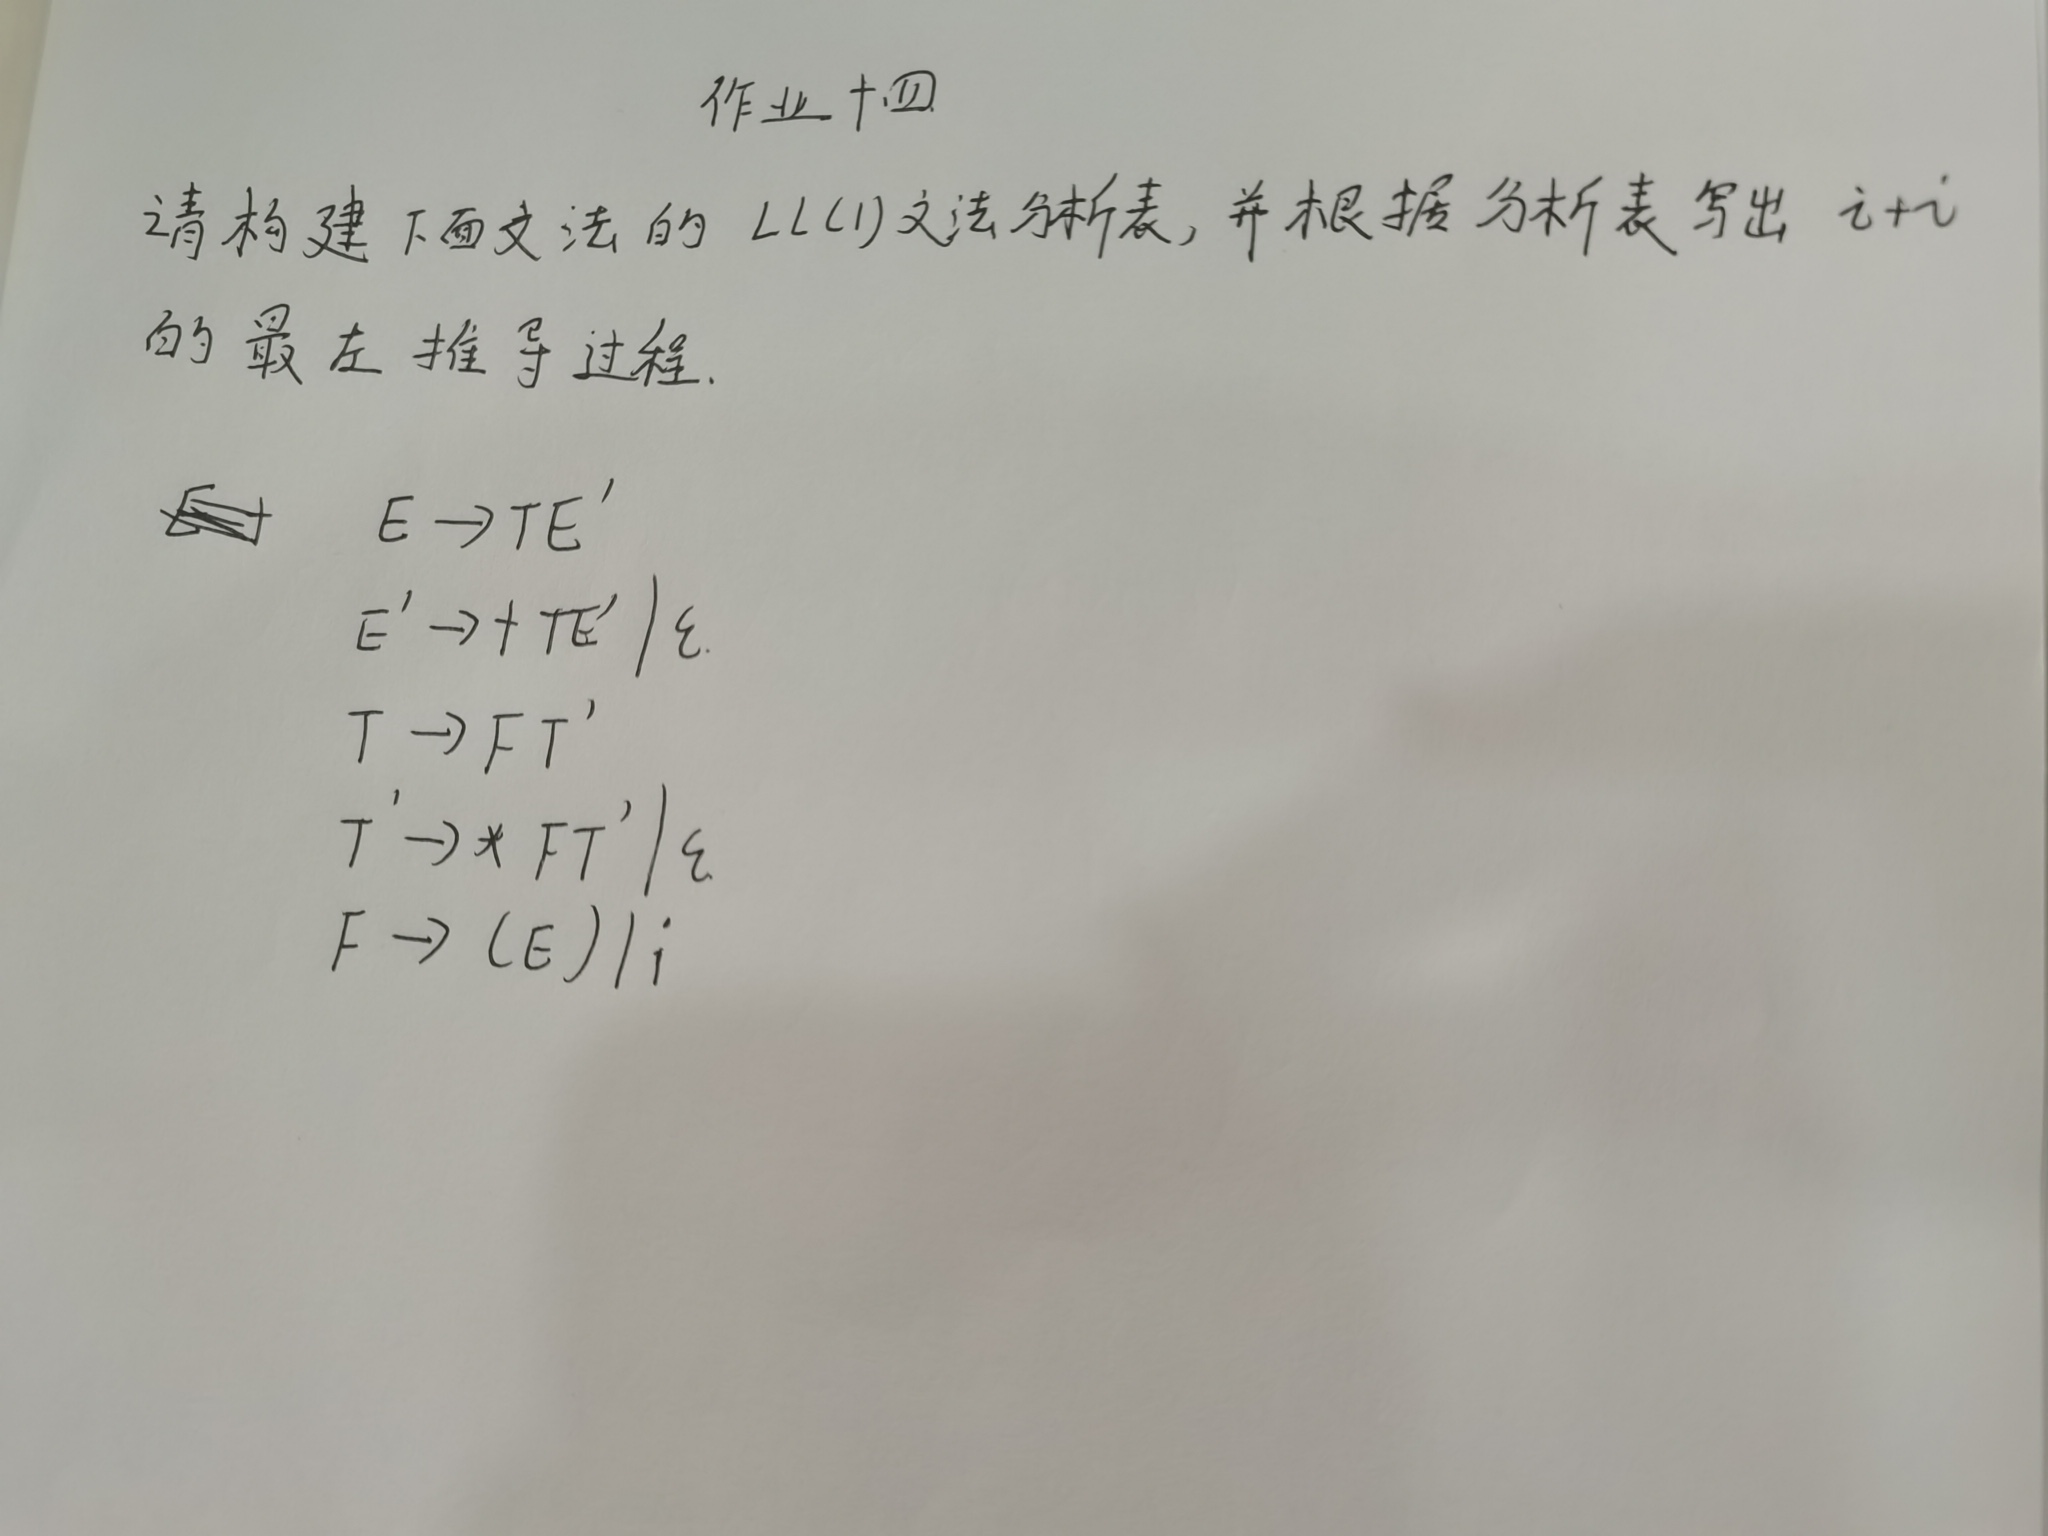 作业十四
请构建下面文法的 LL(1)文法分析表,并根据分析表写出 i+i
的最左推导过程.
E→TE'
E'→+TE'/ε.
T→FT'
T'→*FT'/ε.
F→(E)/i